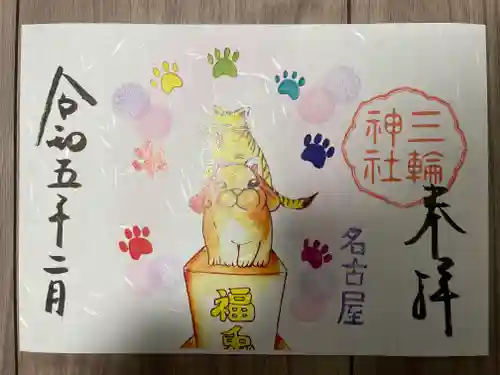 奉拝
三輪
神社
名古屋
福
令和五年二月